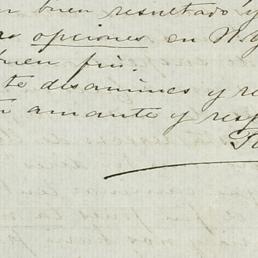 buen resultado y
opciones en N.Y.
buen fin.
te desanimes y re
amante y resp